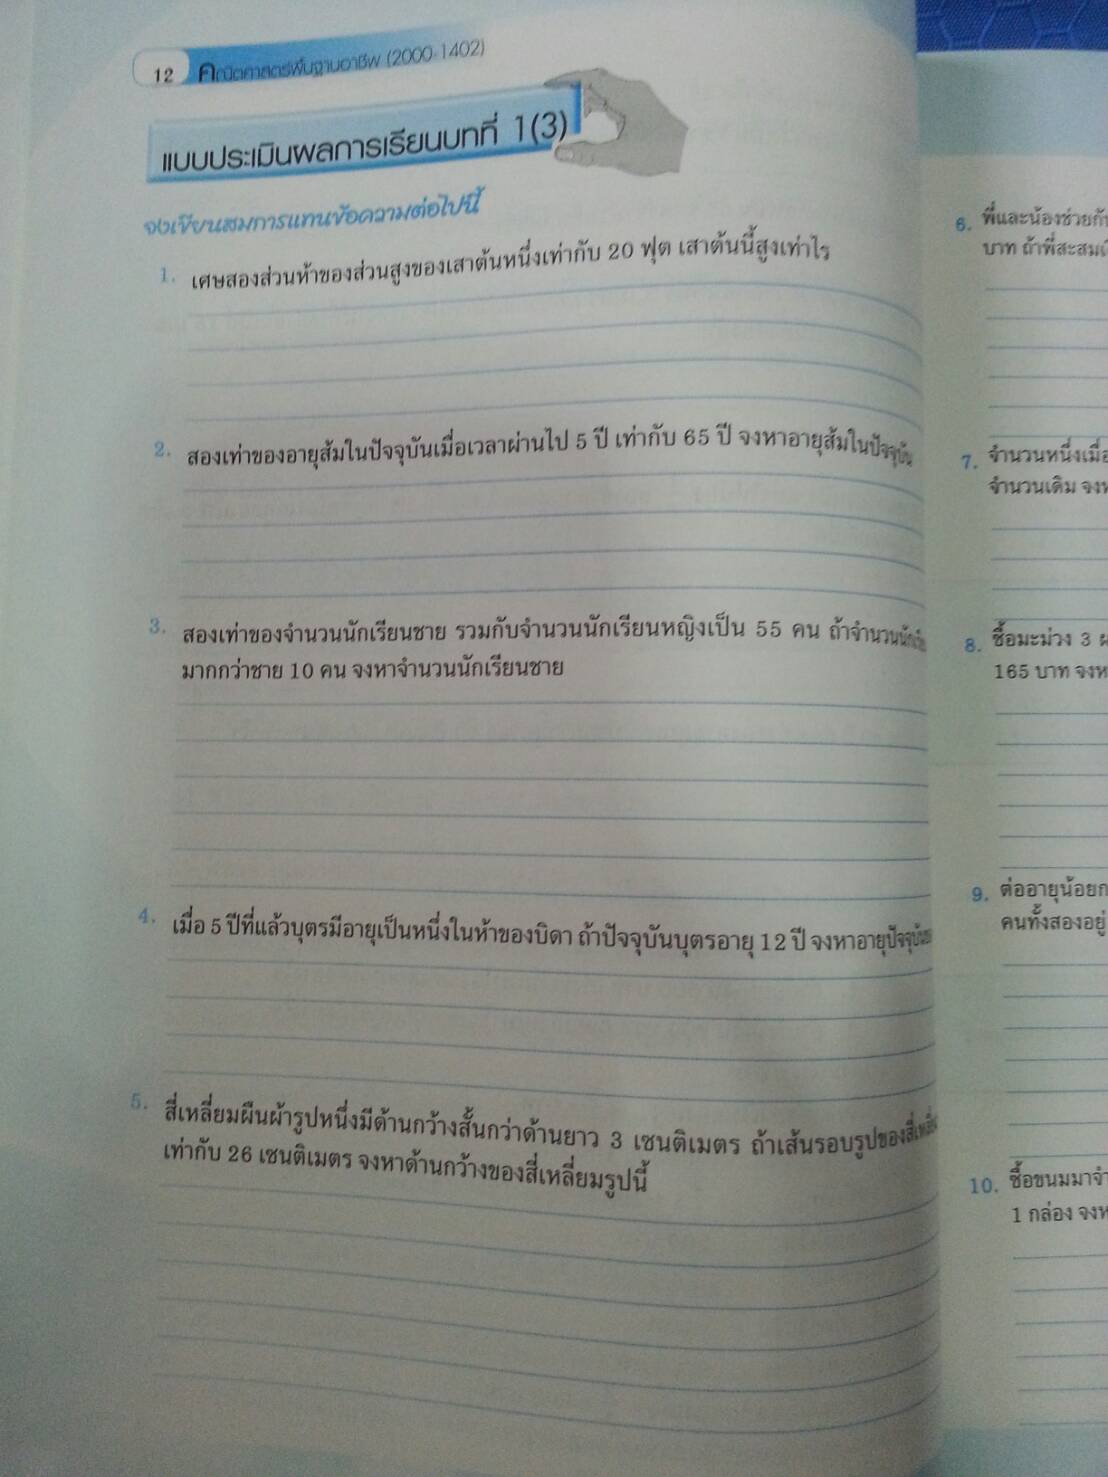 12 คณิตศาสตร์พื้นฐานอาชีพ (2000-1402)
แบบประเมินผลการเรียนบทที่ 1(3)
จงเขียนสมการแทนข้อความต่อไปนี้
1. เศษสองส่วนห้าของส่วนสูงของเสาต้นหนึ่งเท่ากับ 20 ฟุต เสาต้นนี้สูงเท่าไร
2. สองเท่าของอายุส้มในปัจจุบันเมื่อเวลาผ่านไป 5 ปี เท่ากับ 65 ปี จงหาอายุส้มในปัจจุบัน
3. สองเท่าของจำนวนนักเรียนชาย รวมกับจำนวนนักเรียนหญิงเป็น 55 คน ถ้าจำนวน
มากกว่าชาย 10 คน จงหาจำนวนนักเรียนชาย
4. เมื่อ 5 ปีที่แล้วบุตรมีอายุเป็นหนึ่งในห้าของบิดา ถ้าปัจจุบันบุตรอายุ 12 ปี จงหาอายุปัจจุบัน
5. สี่เหลี่ยมผืนผ้ารูปหนึ่งมีด้านกว้างสั้นกว่าด้านยาว 3 เซนติเมตร ถ้าเส้นรอบรูปของสี่เหลี่ยม
เท่ากับ 26 เซนติเมตร จงหาด้านกว้างของสี่เหลี่ยมรูปนี้
6. พี่และน้องช่วยกัน
บาท ถ้าพี่สะสม
7. จำนวนหนึ่งเมื่อ
จำนวนเดิม จง
8. ซื้อมะม่วง 3
165 บาท จง
9. ต่ออายุน้อย
คนทั้งสองอยู่
10. ซื้อขนมมา
1 กล่อง จง